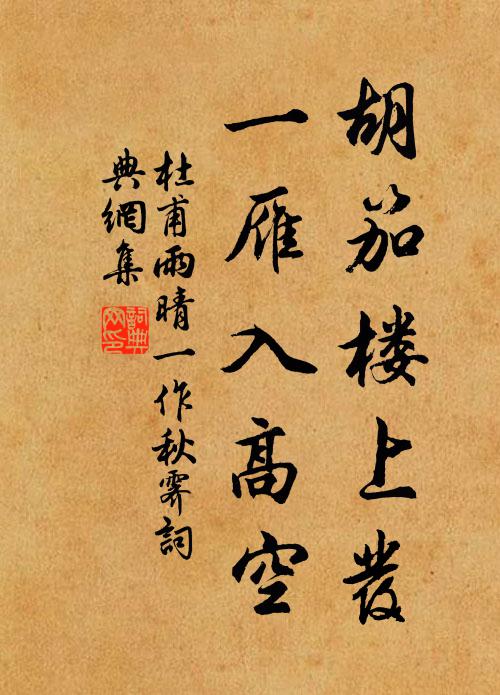 胡笳楼上發
一雁入高空
杜甫雨晴一作秋霽詞
典網集
詞典網印